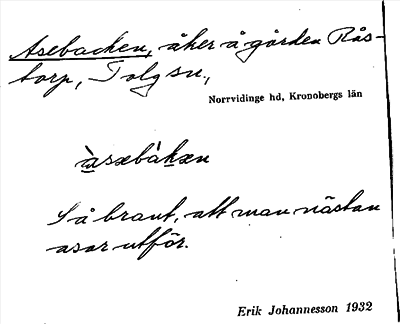 Asebacken, åker å gården Rås-
torp, Tolg sn.,
Norrvidinge hd, Kronobergs län
àsæbàkæn
Så brant, att man nästan
asar utför.
Erik Johannesson 1932